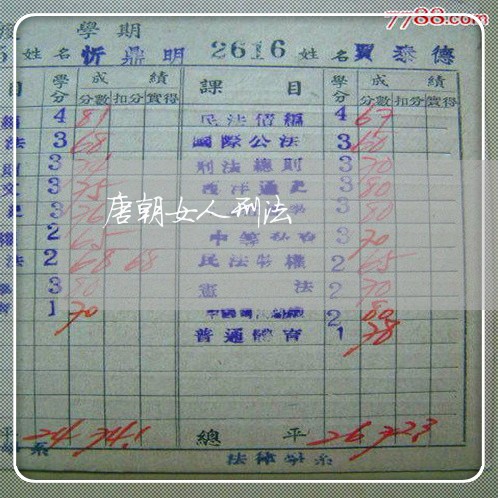 7788.com
學期
姓名 忻鼎明 2616 姓名 賈泰德
目 學分 成績 課目 學分 成績
分數 扣分 實得 分數 扣分 實得
4 81 民法債編 4 67
法 3 68 國際公法 3 60
3 刑法總則 3 70
文 3 75 西洋通史 3 80
3 76 3 80
2 65 3 70
法 2 68 68 民法物權 2 65
3 80 憲法 2 70
1 70 2 80
普通體育 1 78
唐朝女人刑法
平 24 74.1 總平 26 72.3
系 法律學系